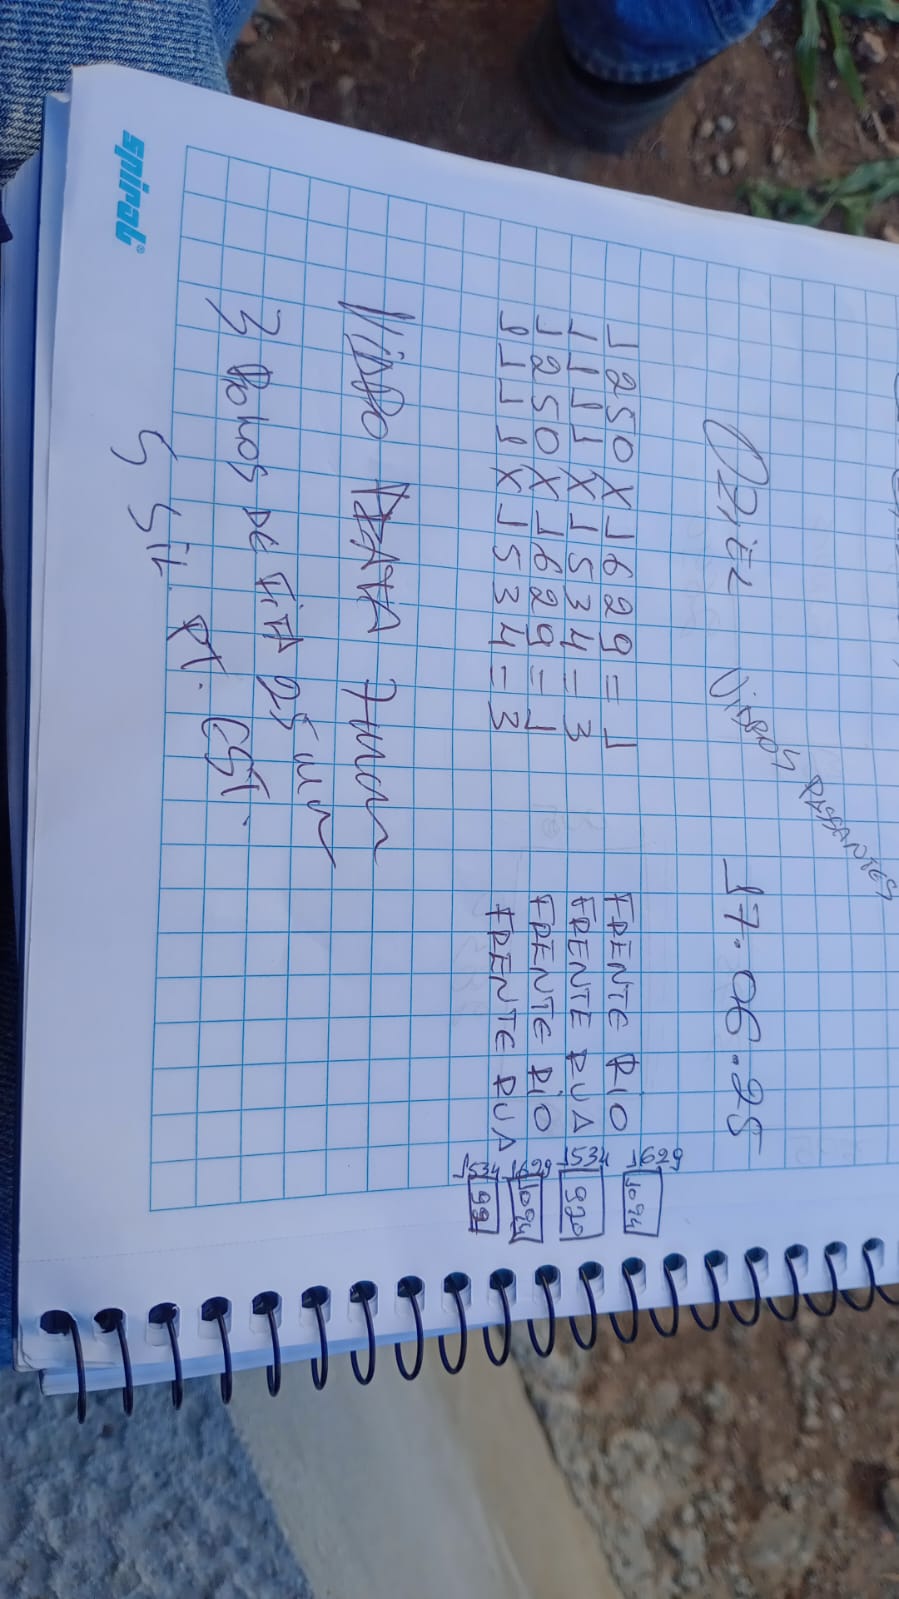 Oziel Vidros Restantes 17.06.25
1250 X 1629 = 1 FRENTE RIO 1629 1094
1111 X 1534 = 3 FRENTE RUA 1534 920
1250 X 1629 = 1 FRENTE RIO 1629 1094
9111 X 1534 = 3 FRENTE RUA 1534 99
Vidro PRATA 7mm
3 Rolos DE FiTA 25 mm
5 Sil. PT. EST.
spiral®